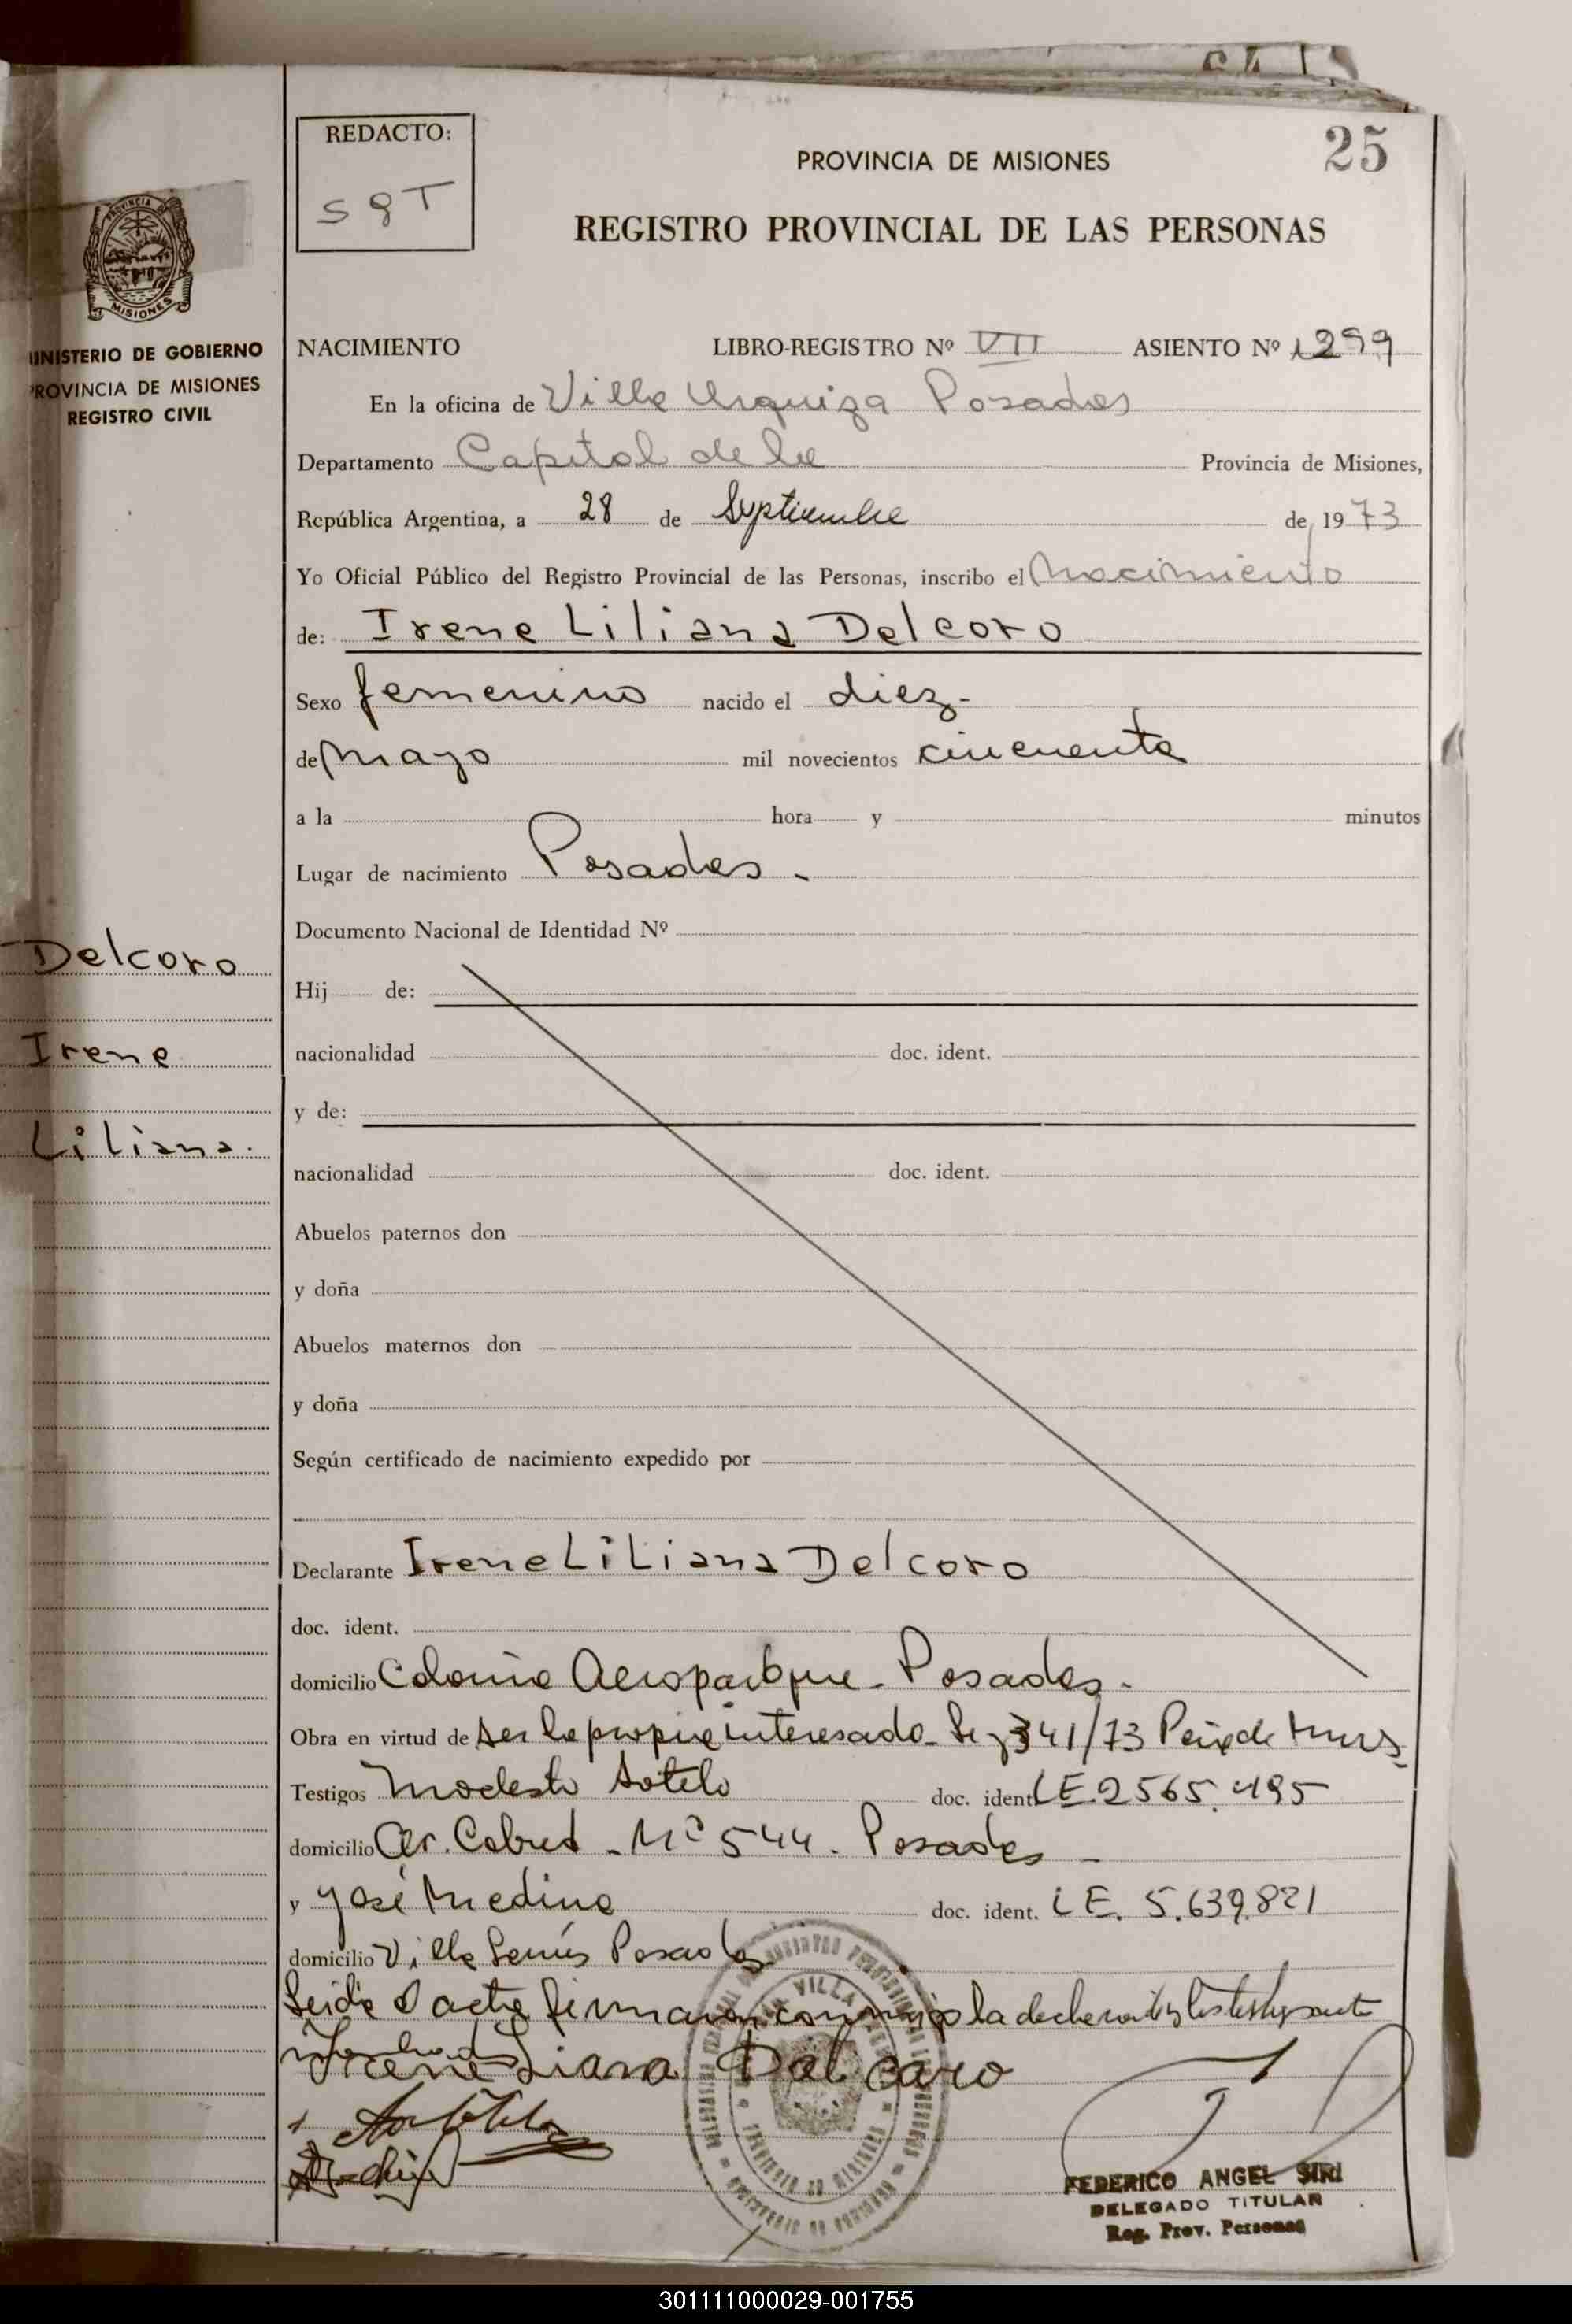 25
REDACTO:
S G T
PROVINCIA DE MISIONES
REGISTRO PROVINCIAL DE LAS PERSONAS
PROVINCIA DE
MISIONES
MINISTERIO DE GOBIERNO
PROVINCIA DE MISIONES
REGISTRO CIVIL
NACIMIENTO LIBRO-REGISTRO Nº VII ASIENTO Nº 1299
En la oficina de Villa Urquiza Posadas
Departamento Capital de la Provincia de Misiones,
República Argentina, a 28 de Septiembre de 1973
Yo Oficial Público del Registro Provincial de las Personas, inscribo el Nacimiento
de: Irene Liliana Delcoro
Sexo femenino nacido el diez-
de Mayo mil novecientos cincuenta
a la hora y minutos
Lugar de nacimiento Posadas -
Documento Nacional de Identidad Nº
Delcoro
Irene
Liliana.
Hij de:
nacionalidad doc. ident.
y de:
nacionalidad doc. ident.
Abuelos paternos don
y doña
Abuelos maternos don
y doña
Según certificado de nacimiento expedido por
Declarante Irene Liliana Delcoro
doc. ident.
domicilio Colonia Aeroparque - Posadas -
Obra en virtud de ser la propia interesada - 341/73
Testigos Modesto Sotelo doc. ident LE. 2565.495
domicilio Av. Cabred - Nº 544 - Posadas -
y José Medina doc. ident. LE. 5.639.821
domicilio Villa Posadas
Leida el acta firmaron conmigo la declarante y los testigos
Irene Liana Dal caro
FEDERICO ANGEL SIRI
DELEGADO TITULAR
Reg. Prov. Personas
301111000029-001755